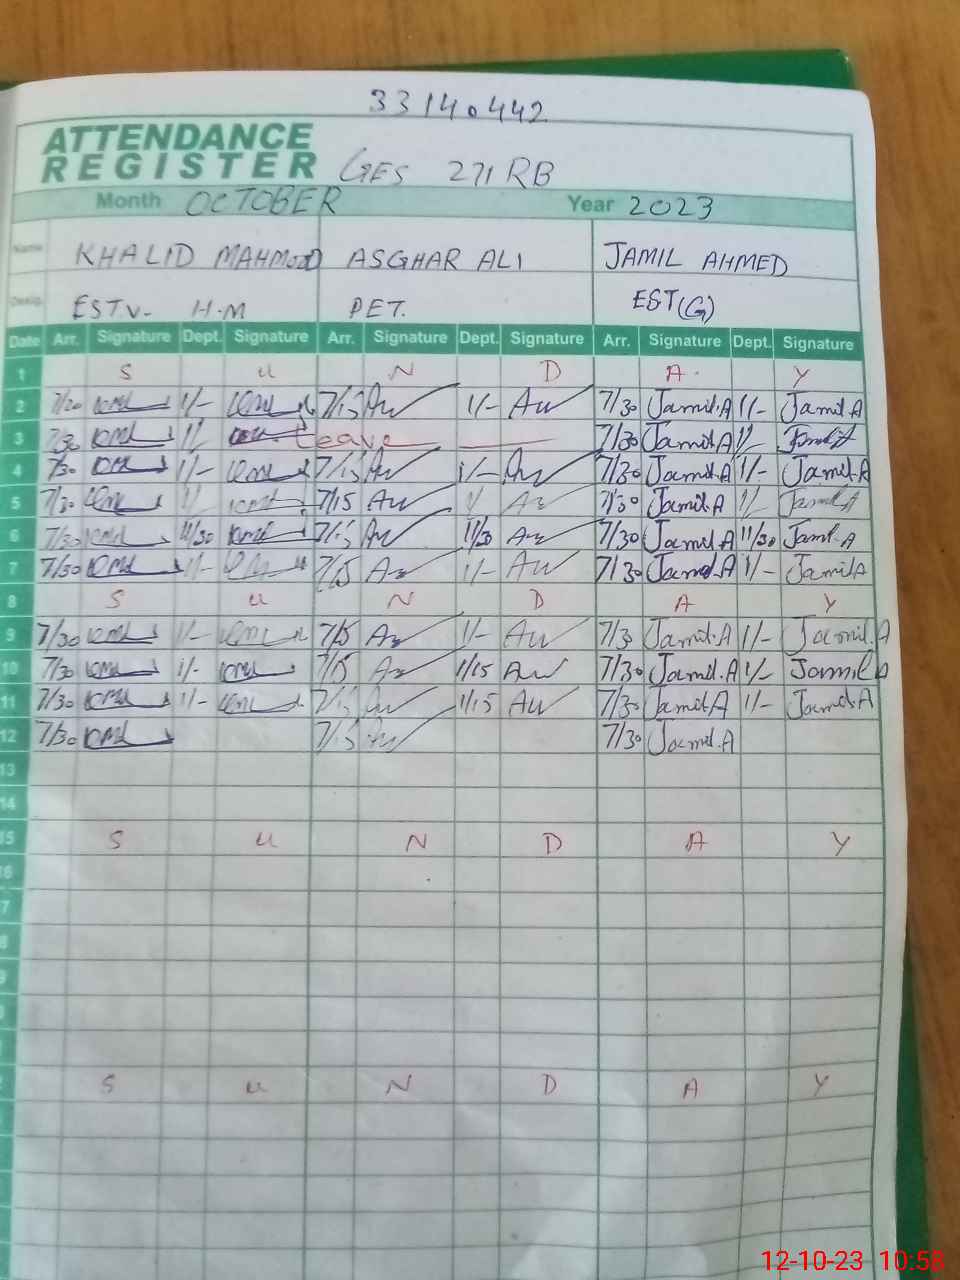 33140442
ATTENDANCE
REGISTER GES 271 RB
Month OCTOBER Year 2023
Name KHALID MAHMOOD ASGHAR ALI JAMIL AHMED
Desig. EST.V- H.M PET. EST(G)
Date Arr. Signature Dept. Signature Arr. Signature Dept. Signature Arr. Signature Dept. Signature
1 S U N D A Y
2 7/20 1/- 7/15 1/- 7/30 Jamil.A 1/- Jamil.A
3 7/30 1/ Leave 7/30 Jamil.A 1/ Jamil.A
4 7/30 1/- 7/15 1/- 7/30 Jamil.A 1/- Jamil.A
5 7/30 1/ 7/15 1/ 7/30 Jamil.A 1/ Jamil.A
6 7/30 11/30 7/15 11/30 7/30 Jamil.A 11/30 Jamil.A
7 7/30 1/- 7/15 1/- 7/30 Jamil.A 1/- Jamil A
8 S U N D A Y
9 7/30 1/- 7/15 1/- 7/30 Jamil.A 1/- Jamil.A
10 7/30 1/- 7/15 1/15 7/30 Jamil.A 1/- Jamil A
11 7/30 1/- 7/15 1/15 7/30 Jamil A 1/- Jamil.A
12 7/30 7/15 7/30 Jamil.A
13
14
15 S U N D A Y
6
7
8
9
S U N D A Y
12-10-23 10:58